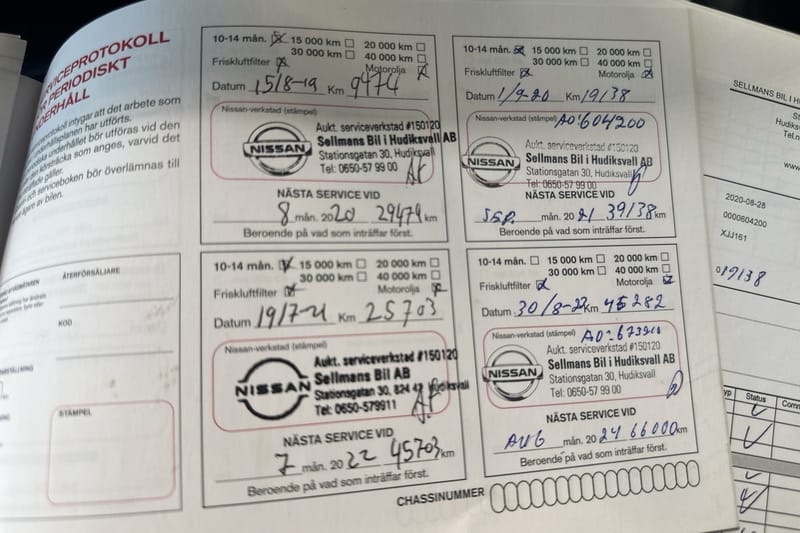 SERVICEPROTOKOLL
PERIODISKT
UNDERHÅLL
protokoll intygar att det arbete som
hållsplanen har utförts.
underhållet bör utföras vid den
körsträcka som anges, varvid det
inträffade gäller.
och serviceboken bör överlämnas till
ägare av bilen.
ÅTERFÖRSÄLJARE
KOD
STÄMPEL
10-14 mån. 15 000 km 20 000 km
30 000 km 40 000 km
Friskluftfilter Motorolja
Datum 15/8-19 Km 9474
Nissan-verkstad (stämpel)
NISSAN
Aukt. serviceverkstad #150120
Sellmans Bil i Hudiksvall AB
Stationsgatan 30, Hudiksvall
Tel: 0650-57 99 00
NÄSTA SERVICE VID
8 mån. 2020 29474 km
Beroende på vad som inträffar först.
10-14 mån. 15 000 km 20 000 km
30 000 km 40 000 km
Friskluftfilter Motorolja
Datum 1/9-20 Km 19138
Nissan-verkstad (stämpel) AO:604200
NISSAN
Aukt. serviceverkstad #150120
Sellmans Bil i Hudiksvall AB
Stationsgatan 30, Hudiksvall
Tel: 0650-57 99 00
NÄSTA SERVICE VID
SEP. mån. 2021 39138 km
Beroende på vad som inträffar först.
10-14 mån. 15 000 km 20 000 km
30 000 km 40 000 km
Friskluftfilter Motorolja
Datum 19/7-21 Km 25703
Nissan-verkstad (stämpel)
NISSAN
Aukt. serviceverkstad #150120
Sellmans Bil AB
Stationsgatan 30, 824 42 Hudiksvall
Tel: 0650-579911
NÄSTA SERVICE VID
7 mån. 2022 45703 km
Beroende på vad som inträffar först.
10-14 mån. 15 000 km 20 000 km
30 000 km 40 000 km
Friskluftfilter Motorolja
Datum 30/8-22 Km 45282
Nissan-verkstad (stämpel)
NISSAN
Aukt. serviceverkstad #150120
Sellmans Bil i Hudiksvall AB
Stationsgatan 30, Hudiksvall
Tel: 0650-57 99 00
NÄSTA SERVICE VID
AUG mån. 2024 66000 km
Beroende på vad som inträffar först.
CHASSINUMMER
SELLMANS BIL I
Hudiks
Tel.
www
2020-08-28
0000604200
XJJ161
19138
Status